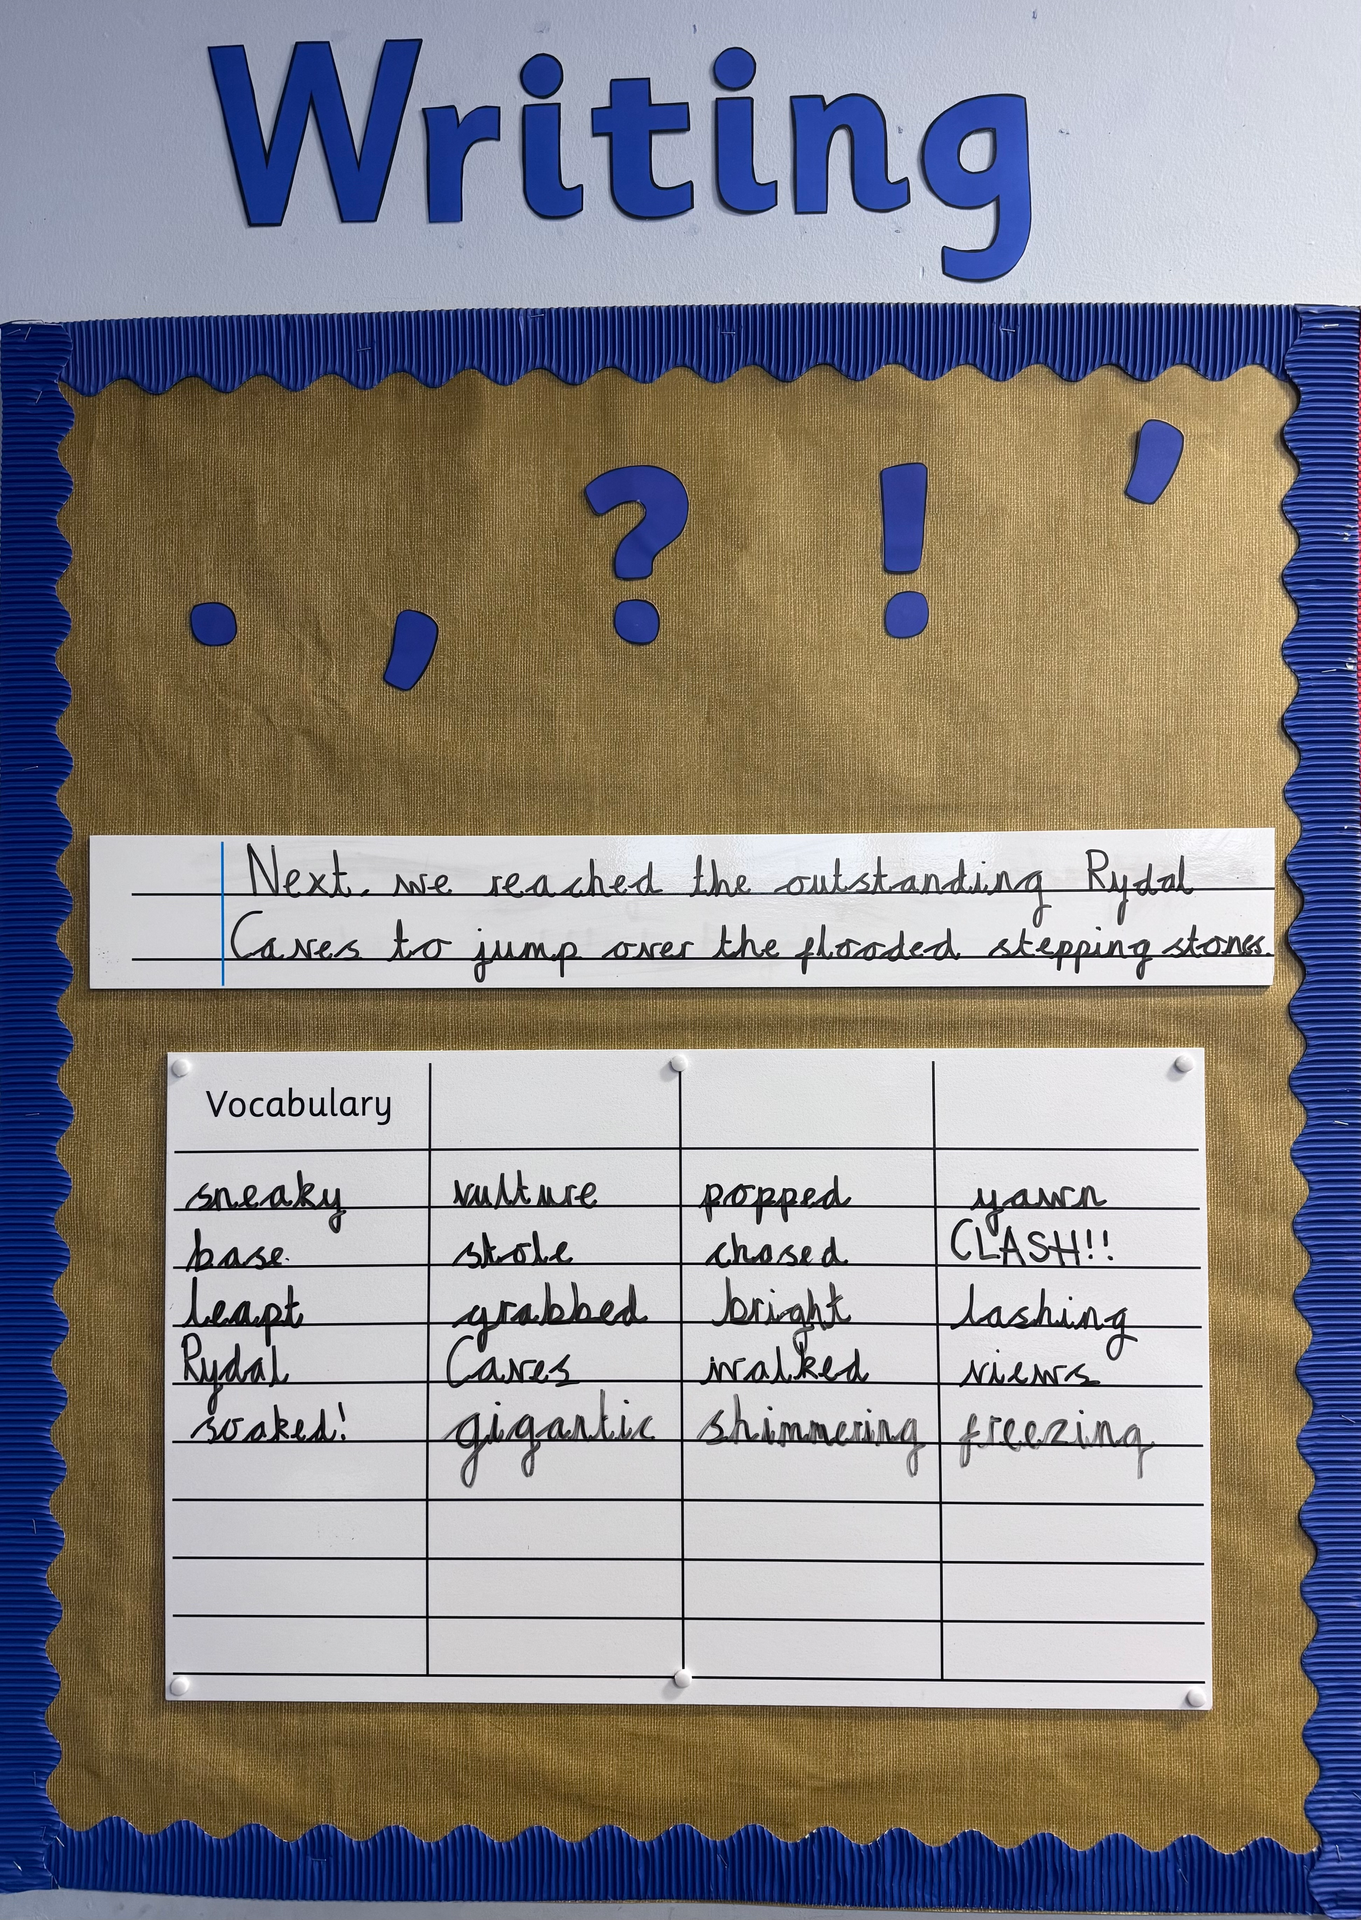 Writing
. , ? ! '
Next, we reached the outstanding Rydal
Caves to jump over the flooded stepping stones.
Vocabulary
sneaky vulture popped yawn
base stole chased CLASH!!
leapt grabbed bright lashing
Rydal Caves walked views
soaked! gigantic shimmering freezing